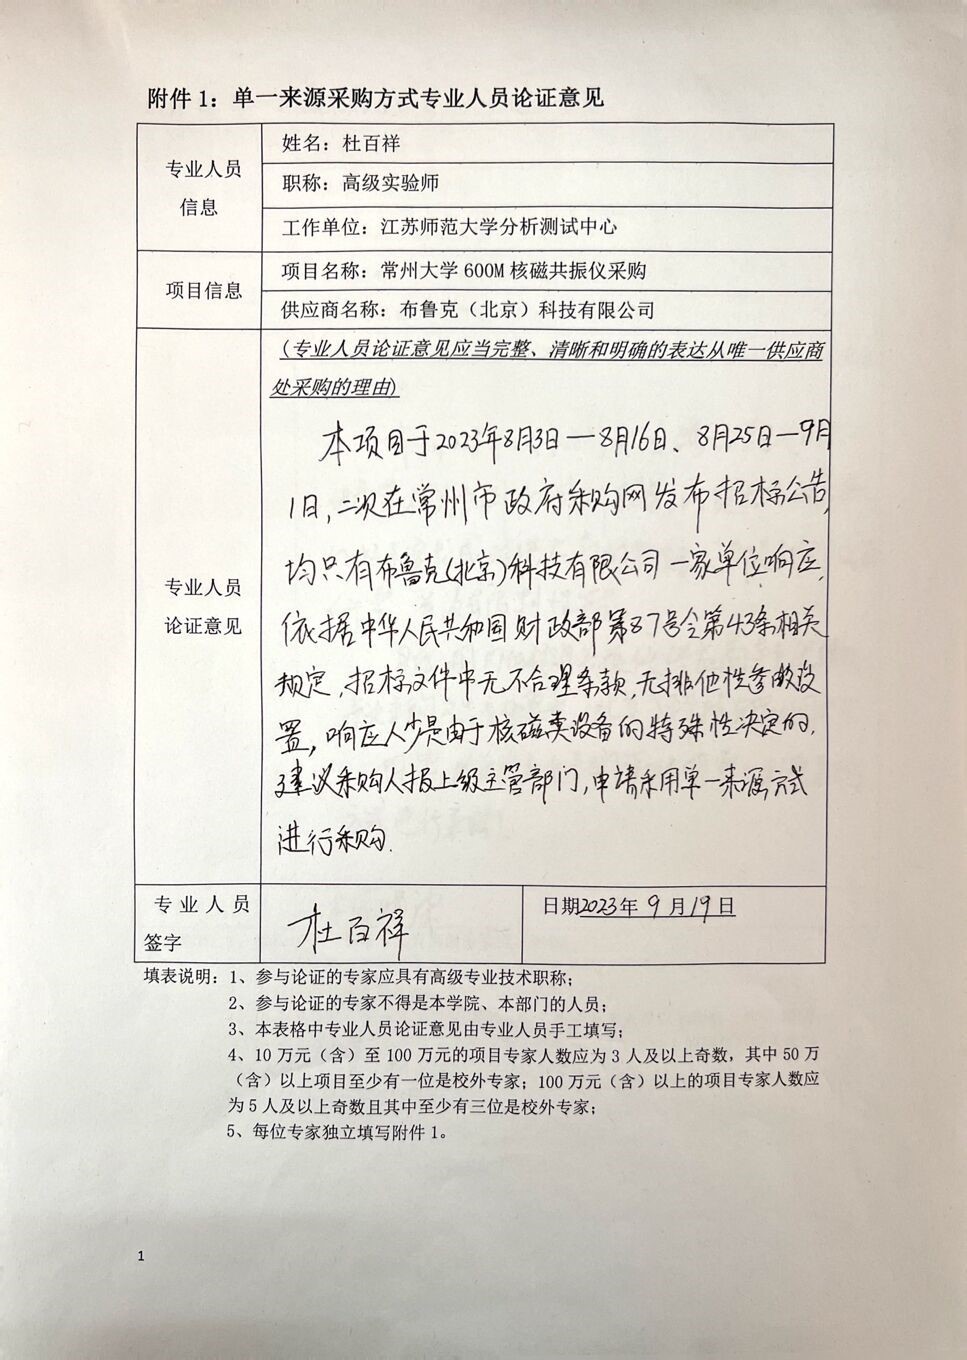 附件1：单一来源采购方式专业人员论证意见
专业人员
信息
姓名：杜百祥
职称：高级实验师
工作单位：江苏师范大学分析测试中心
项目信息
项目名称：常州大学600M核磁共振仪采购
供应商名称：布鲁克（北京）科技有限公司
专业人员
论证意见
(专业人员论证意见应当完整、清晰和明确的表达从唯一供应商
处采购的理由)
本项目于2023年8月3日—8月16日、8月25日—9月
1日，二次在常州市政府采购网发布招标公告，
均只有布鲁克(北京)科技有限公司一家单位响应，
依据中华人民共和国财政部第87号令第43条相关
规定，招标文件中无不合理条款，无排他性参数设
置，响应人少是由于核磁类设备的特殊性决定的，
建议采购人报上级主管部门，申请采用单一来源方式
进行采购.
专业人员
签字
杜百祥
日期2023年9月19日
填表说明：1、参与论证的专家应具有高级专业技术职称；
2、参与论证的专家不得是本学院、本部门的人员；
3、本表格中专业人员论证意见由专业人员手工填写；
4、10万元（含）至100万元的项目专家人数应为3人及以上奇数，其中50万
（含）以上项目至少有一位是校外专家；100万元（含）以上的项目专家人数应
为5人及以上奇数且其中至少有三位是校外专家；
5、每位专家独立填写附件1。
1